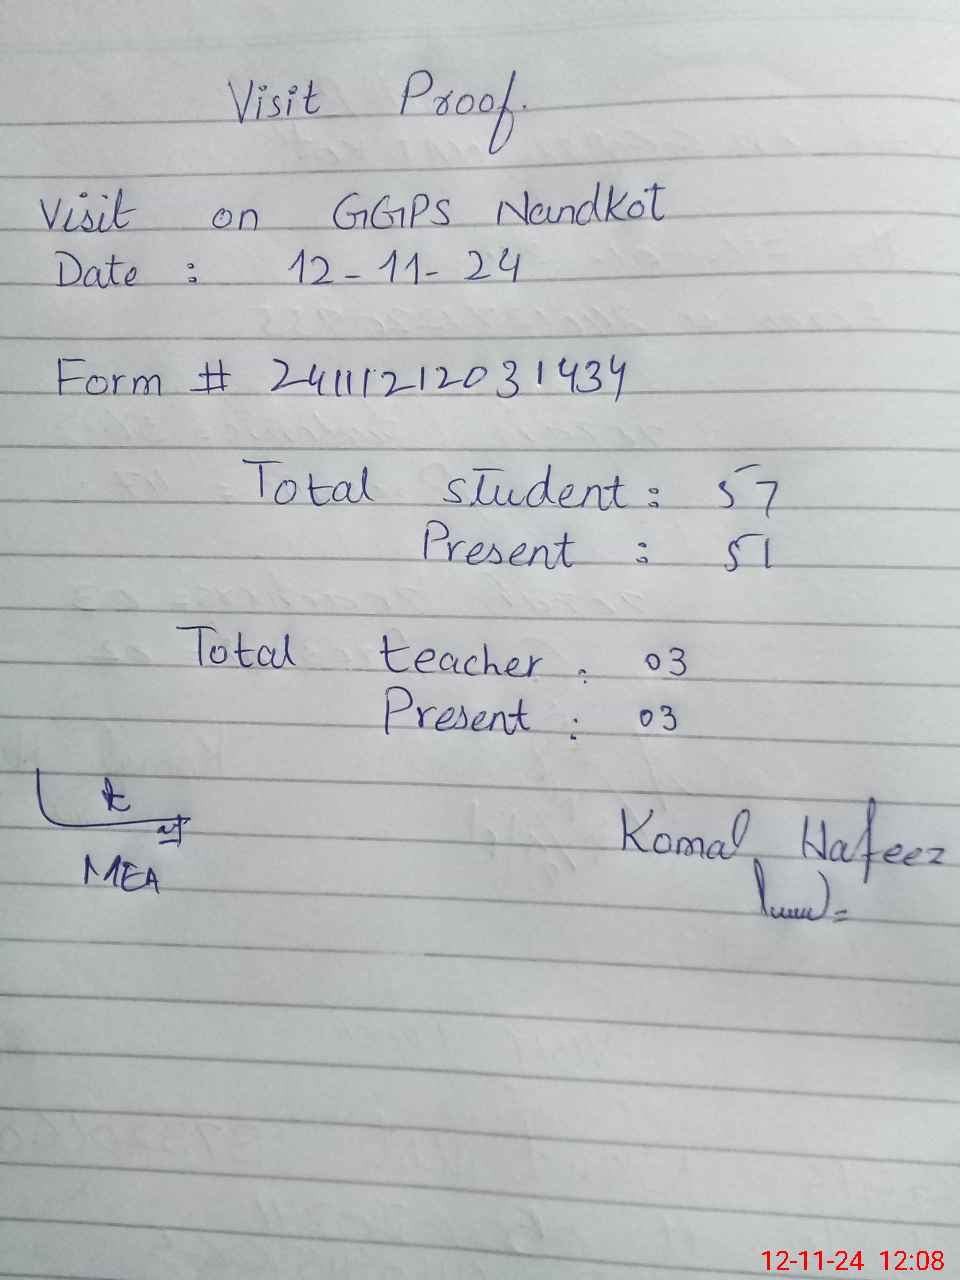 Visit Proof.
Visit on GGPS Nandkot
Date : 12-11-24
Form # 24111212031434
Total student : 57
Present : 51
Total teacher : 03
Present : 03
MEA
Komal Hafeez
12-11-24 12:08